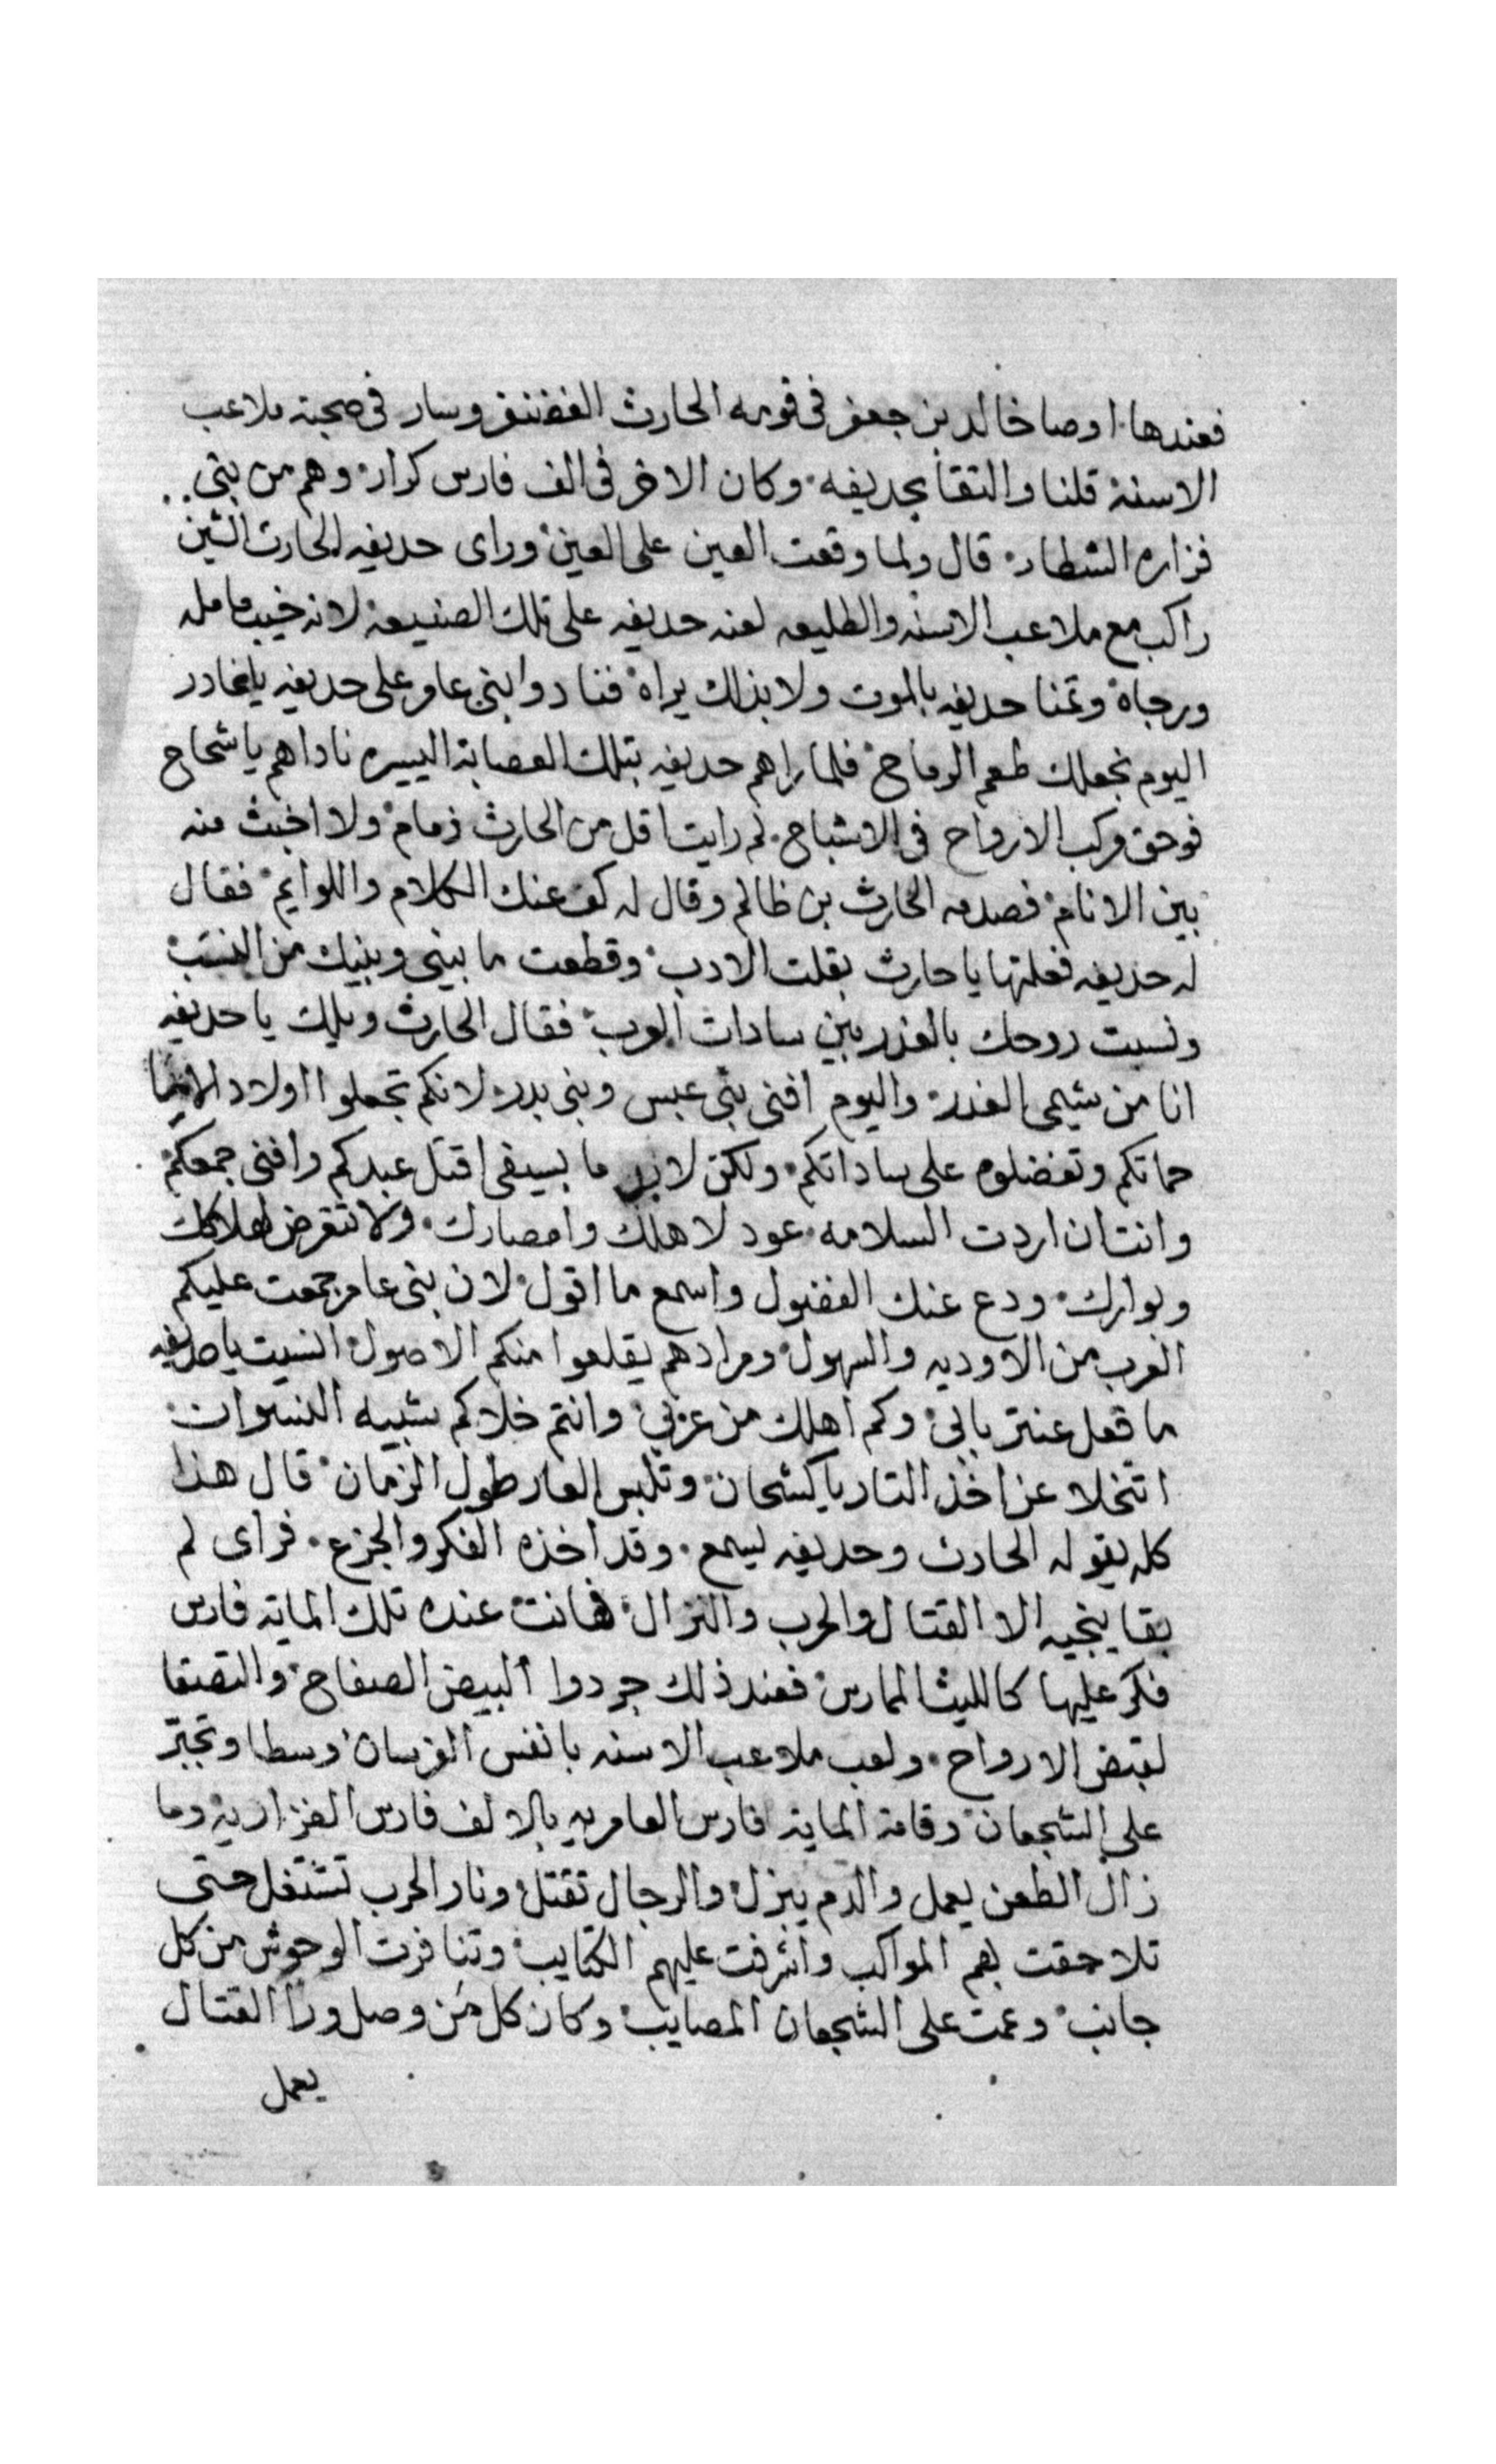 فعندها اوصا خالد بن جعفر في قومه الحارث الغضنفر وسار في صحبة ملاعب
الاسنة قلنا والتقا بحديفه وكان الاخر في الف فارس كرار وهم من بني
فزاره الشطار قال ولما وقعت العين على العين وراى حديفه الحارث الشين
راكب مع ملاعب الاسنه والطليعه لعنه حديفه على تلك الصنيعة لانه خيب مامله
ورجاه وتمنا حديفه بالموت ولا بذلك يراه فنادوا بني عامر على حديفه ياغادر
اليوم نجعلك طعم الرماح فلما راهم حديفه بتلك العصابة اليسيره ناداهم يا شحاح
فوحق مركب الارواح في الاشباح لم رايت اقل من الحارث ذمام ولا اخبث منه
بين الانام فصدمه الحارث بن ظالم وقال له كف عنك الكلام واللوايم فقال
له حذيفه فعلتها يا حارث بقلت الادب وقطعت ما بيني وبينك من النسب
ونسبت روحك بالغدر بين سادات العرب فقال الحارث ويلك يا حديفه
انا من شيمي الغدر واليوم افني بني عبس وبني بدر لانكم تجعلوا اولاد الاما
حماتكم وتفضلوه على ساداتكم ولكن لابد ما بسيفي اقتل عبدكم وافني جمعكم
وانت ان اردت السلامه عود لاهلك وامصارك ولا تتعرض لهلاكك
وبوارك ودع عنك الفضول واسمع ما اقول لان بني عامر جمعت عليكم
العرب من الاوديه والسهول ومرادهم يقلعوا منكم الاصول انسيت يا حديفه
ما فعل عنتر بابي وكم اهلك من عربي وانتم خلاكم شبيه النسوات
اتتخلا عن اخذ التار يا كشحان وتلبس العار طول الزمان قال هذا
كله يقوله الحارث وحديفه ليسمع وقد اخذه الفكر والجزع فراى لم
بقا ينجيه الا القتال والحرب والنزال فهانت عنده تلك الماية فارس
فكر عليها كالليث الممارس فعند ذلك جردوا البيض الصفاح والتصقا
لقبض الارواح ولعب ملاعب الاسنه بانفس الفرسان وسطا وتجبر
على الشجعان وقامة الماية فارس العامريه بالالف فارس الفزاريه وما
زال الطعن يعمل والدم ينزل والرجال تقتل ونار الحرب تشتغل حتى
تلاحقت بهم المواكب واشرفت عليهم الكتايب وتنافرت الوحوش من كل
جانب وعمت على الشجعان المصايب وكان كل من وصل ورا القتال
يعمل